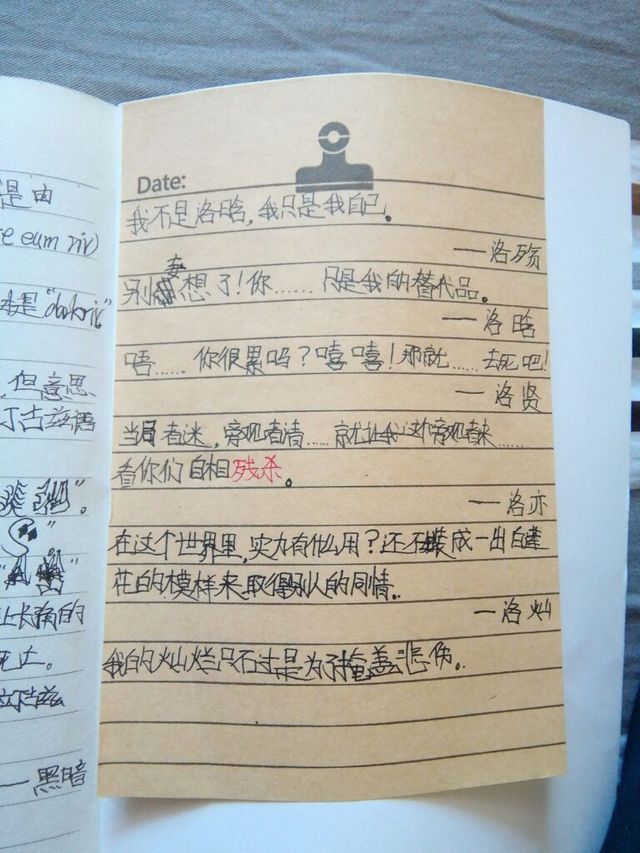 是由
Date:
我不是洛晗，我只是我自己。
re eum riv)
——洛殇
别妄想了！你……只是我的替代品。
——洛晗
唔……你很累吗？嘻嘻！那就……去死吧！
，但意思
——洛贤
当局者迷，旁观者清……就让我这个旁观者来……
看你们自相残杀。
——洛亦
在这个世界里，实力有什么用？还不装成一出白莲
花的模样来取得别人的同情。
让长痛的
——洛灿
死亡。
我的灿烂只不过是为了掩盖悲伤。
——黑暗